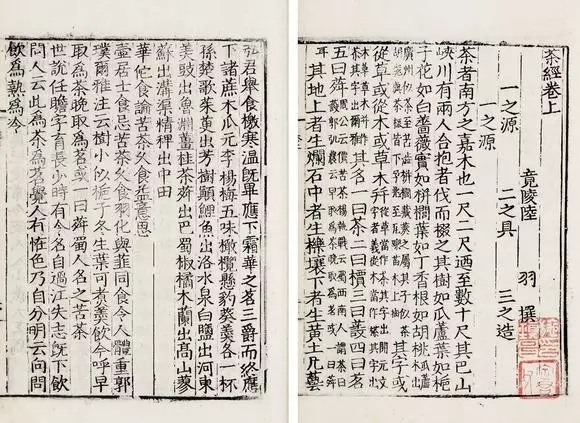 茶經卷上
竟陵陸 羽 撰
一之源 二之具 三之造
一之源
茶者南方之嘉木也一尺二尺迺至數十尺其巴山
峽川有兩人合抱者伐而掇之其樹如瓜蘆葉如梔
子花如白薔薇實如栟櫚葉如丁香根如胡桃瓜蘆木出
廣州似茶至苦澁栟櫚蒲葵之屬其子似茶胡桃與茶根皆下孕兆至瓦礫苗木上抽其字或
從草或從木或草木并從草當作茶其字出開元文字音義從木當作
其字出爾雅其名一曰茶二曰檟三曰蔎四曰茗
五曰荈周公云檟苦荼揚執戟云蜀西南人謂茶曰蔎郭弘農云早取爲茶晚取爲茗或一曰荈耳
其地上者生爛石中者生櫟壤下者生黃土凡藝
弘君舉食檄寒溫既畢應下霜華之茗三爵而終應
下諸蔗木瓜元李楊梅五味橄欖懸豹葵羹各一杯
孫楚歌茱萸出芳樹顛鯉魚出洛水泉白鹽出河東
美豉出魯淵薑桂茶荈出巴蜀椒橘木蘭出高山蓼
蘇出溝渠精稗出中田
華佗食論苦茶久食益意思
壺居士食忌苦茶久食羽化與韭同食令人體重郭
璞爾雅注云樹小似梔子冬生葉可煮羹飲今呼早
取爲茶晚取爲茗或一曰荈蜀人名之苦茶
世說任瞻字育長少時有令名自過江失志既下飲
問人云此爲茶爲茗覺人有怪色乃自分明云向問
飲爲熱爲冷